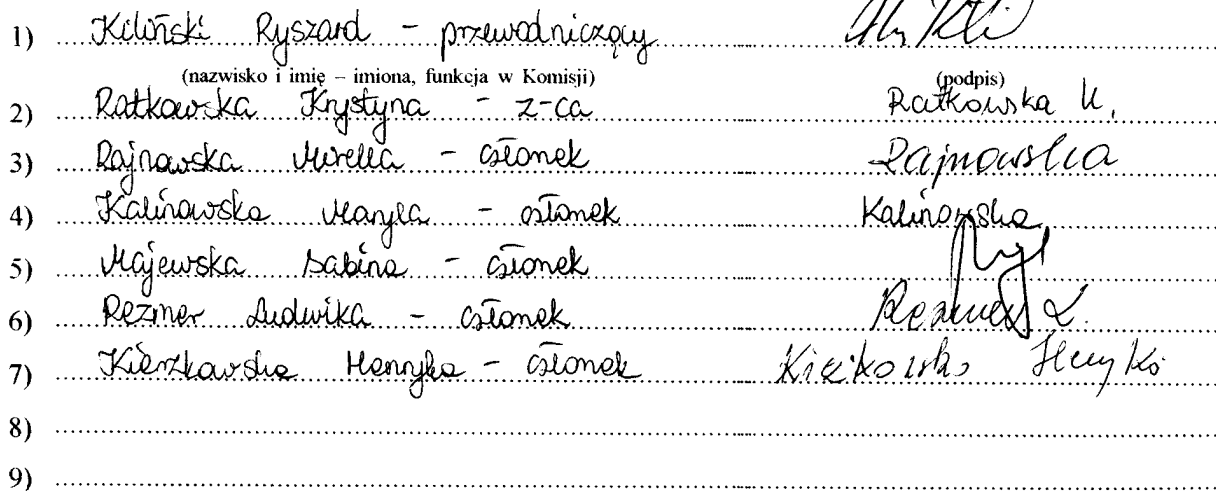 1) Kiloński Ryszard - przewodniczący
(nazwisko i imię – imiona, funkcja w Komisji) (podpis)
2) Ratkowska Krystyna - z-ca Ratkowska K.
3) Rajnowska Mirella - członek Rajnowska
4) Kalinowska Maryla - członek Kalinowska
5) Majewska Sabina - członek
6) Rezmer Ludwika - członek Rezmer L.
7) Kierzkowska Henryka - członek
8)
9)